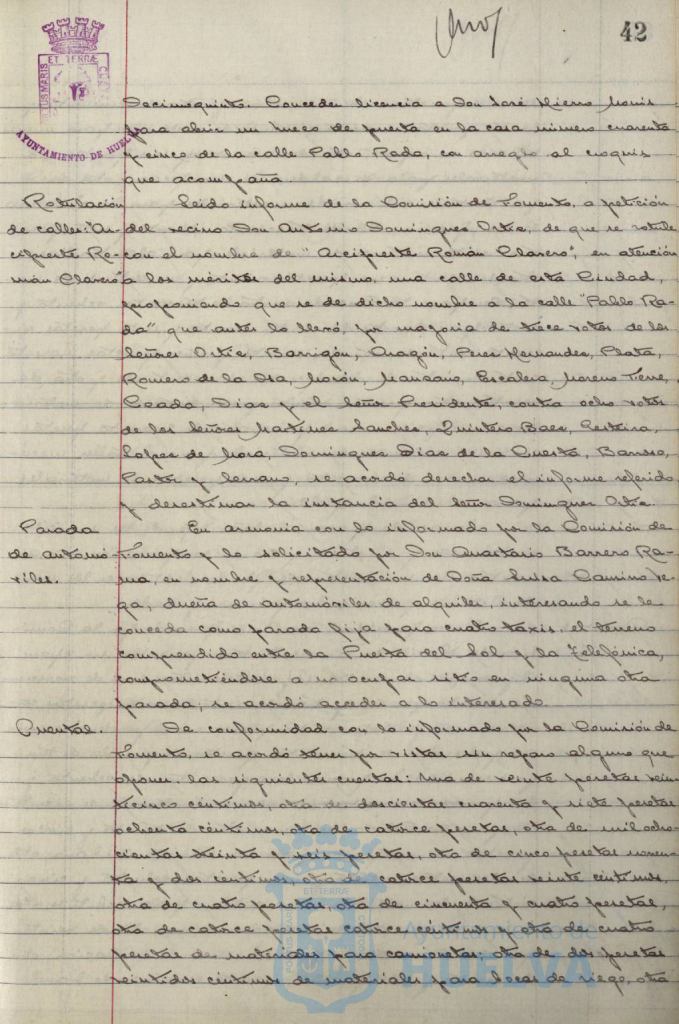 42
PORTUS MARIS ET TERRÆ CUSTODIA
AYUNTAMIENTO DE HUELVA
Decimoquinto. Conceder licencia a Don José Hierro
para abrir un hueco de puerta en la casa número cuarenta
y cinco de la calle Pablo Rada, con arreglo al croquis
que acompaña.
Rotulación de calles: "Arcipreste Román Clavero"
Leido informe de la Comisión de Fomento, a petición
del vecino Don Antonio Dominguez Ortiz, de que se rotule
con el nombre de "Arcipreste Román Clavero", en atención
a los méritos del mismo, una calle de esta Ciudad,
proponiendo que se de dicho nombre a la calle "Pablo Ra-
da" que antes lo llevó, por mayoria de trece votos de los
Señores Ortiz, Barrigón, Aragón, Perez Hernandez, Plata,
Romero de la Osa, Morón, Manzano, Escalera, Moreno
Ceada, Diaz y el Señor Presidente, contra ocho votos
de los Señores Martinez Sanchez, Quintero Baez,
Lopez de Mora, Dominguez Diaz de la Cuesta, Barroso,
Pastor y Serrano, se acordó desechar el informe referido
y desestimar la instancia del Señor Dominguez Ortiz.
Parada
de automó-
viles.
En armonia con lo informado por la Comisión de
Fomento y lo solicitado por Don Anastasio Barrero Ra-
ma, en nombre y representación de Doña Luisa Camino Ve-
ga, dueña de automóviles de alquiler, interesando se le
conceda como parada fija para cuatro taxis, el terreno
comprendido entre la Puerta del Sol y la Telefónica,
comprometiéndose a no ocupar sitio en ninguna otra
parada, se acordó acceder a lo interesado.
Cuentas.
De conformidad con lo informado por la Comisión de
Fomento, se acordó tener por vistas sin reparo alguno que
oponer, las siguientes cuentas: una de veinte pesetas vein-
ticinco céntimos, otra de doscientas cuarenta y siete pesetas
ochenta céntimos, otra de catorce pesetas, otra de mil ocho-
cientas treinta y seis pesetas, otra de cinco pesetas noven-
ta y dos céntimos, otra de catorce pesetas veinte céntimos,
otra de cuatro pesetas, otra de cincuenta y cuatro pesetas,
otra de catorce pesetas catorce céntimos y otra de cuatro
pesetas de materiales para camionetas; otra de dos pesetas
veintidos céntimos de materiales para bocas de riego, otra
Ayuntamiento de
HUELVA